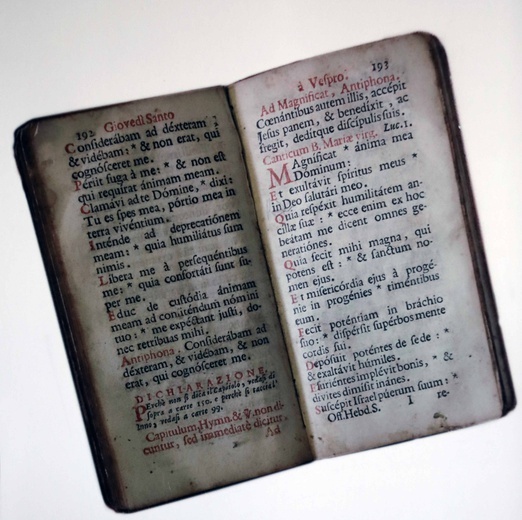 192 Giovedì Santo
Considerábam ad déxteram
& vidébam: * & non erat, qui
cognósceret me.
Périit fuga à me: * & non est
qui requírat ánimam meam.
Clamávi ad te Dómine, * dixi:
Tu es spes mea, pórtio mea in
terra vivéntium.
Inténde ad deprecatiónem
meam: * quia humiliátus sum
nimis.
Líbera me à persequéntibus
me: * quia confortáti sunt su-
per me.
Educ de custódia ánimam
meam ad confiténdum nómini
tuo: * me expéctant justi, do-
nec retríbuas mihi.
Antiphona. Considerábam ad
déxteram, & vidébam, & non
erat, qui cognósceret me.
DICHIARAZIONE.
Perchè non si dica il Capitolo, vedasi di
sopra a carte 150. e perchè si tralasci l'
Inno, vedasi a carte 99.
Capitulum, Hymn. & ℣. non di-
cuntur, sed immediatè dicitur
Ad
à Vespro. 193
Ad Magnificat, Antiphona.
Cœnántibus autem illis, accépit
Jesus panem, & benedíxit, ac
fregit, dedítque discípulis suis.
Canticum B. Mariæ virg. Luc. 1.
MAgníficat * ánima mea
Dóminum:
Et exultávit spíritus meus *
in Deo salutári meo.
Quia respéxit humilitátem an-
cíllæ suæ: * ecce enim ex hoc
beátam me dicent omnes ge-
neratiónes.
Quia fecit mihi magna, qui
potens est: * & sanctum no-
men ejus.
Et misericórdia ejus à progé-
nie in progénies * timéntibus
eum.
Fecit poténtiam in bráchio
suo: * dispérsit supérbos mente
cordis sui.
Depósuit poténtes de sede: *
& exaltávit húmiles.
Esuriéntes implévit bonis, * &
dívites dimísit inánes.
Suscépit Israel púerum suum: *
Off. Hebd. S. I re-